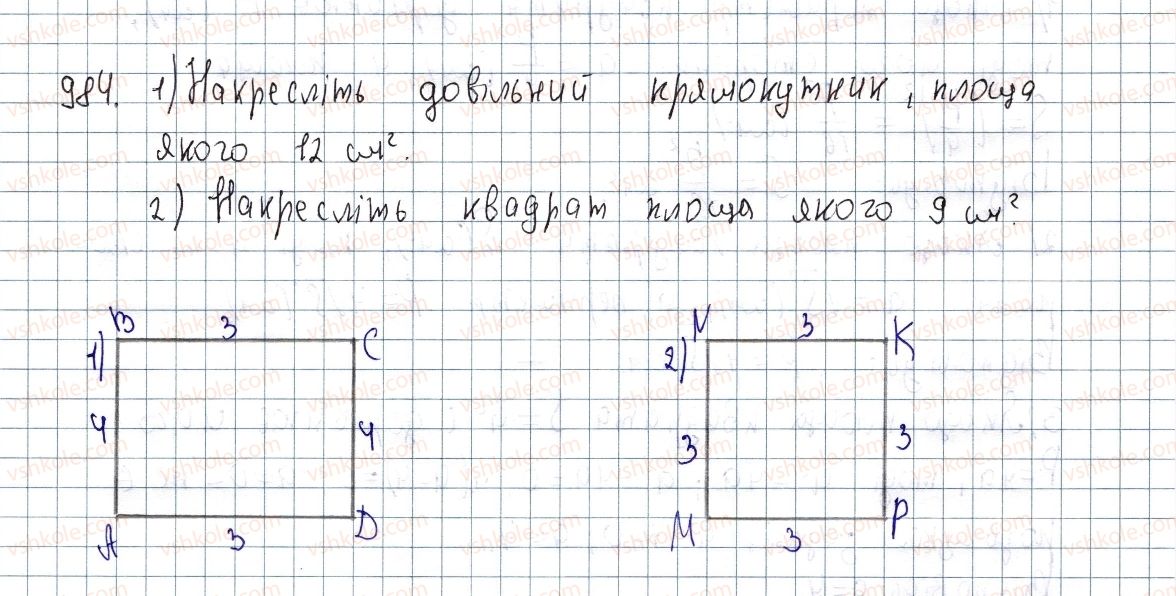 984. 1) Накресліть довільний крямокутник, площа
якого 12 см².
2) Накресліть квадрат площа якого 9 см².
B 3 C
1)
4 4
A 3 D
N 3 K
2)
3 3
M 3 P
vshkole.com